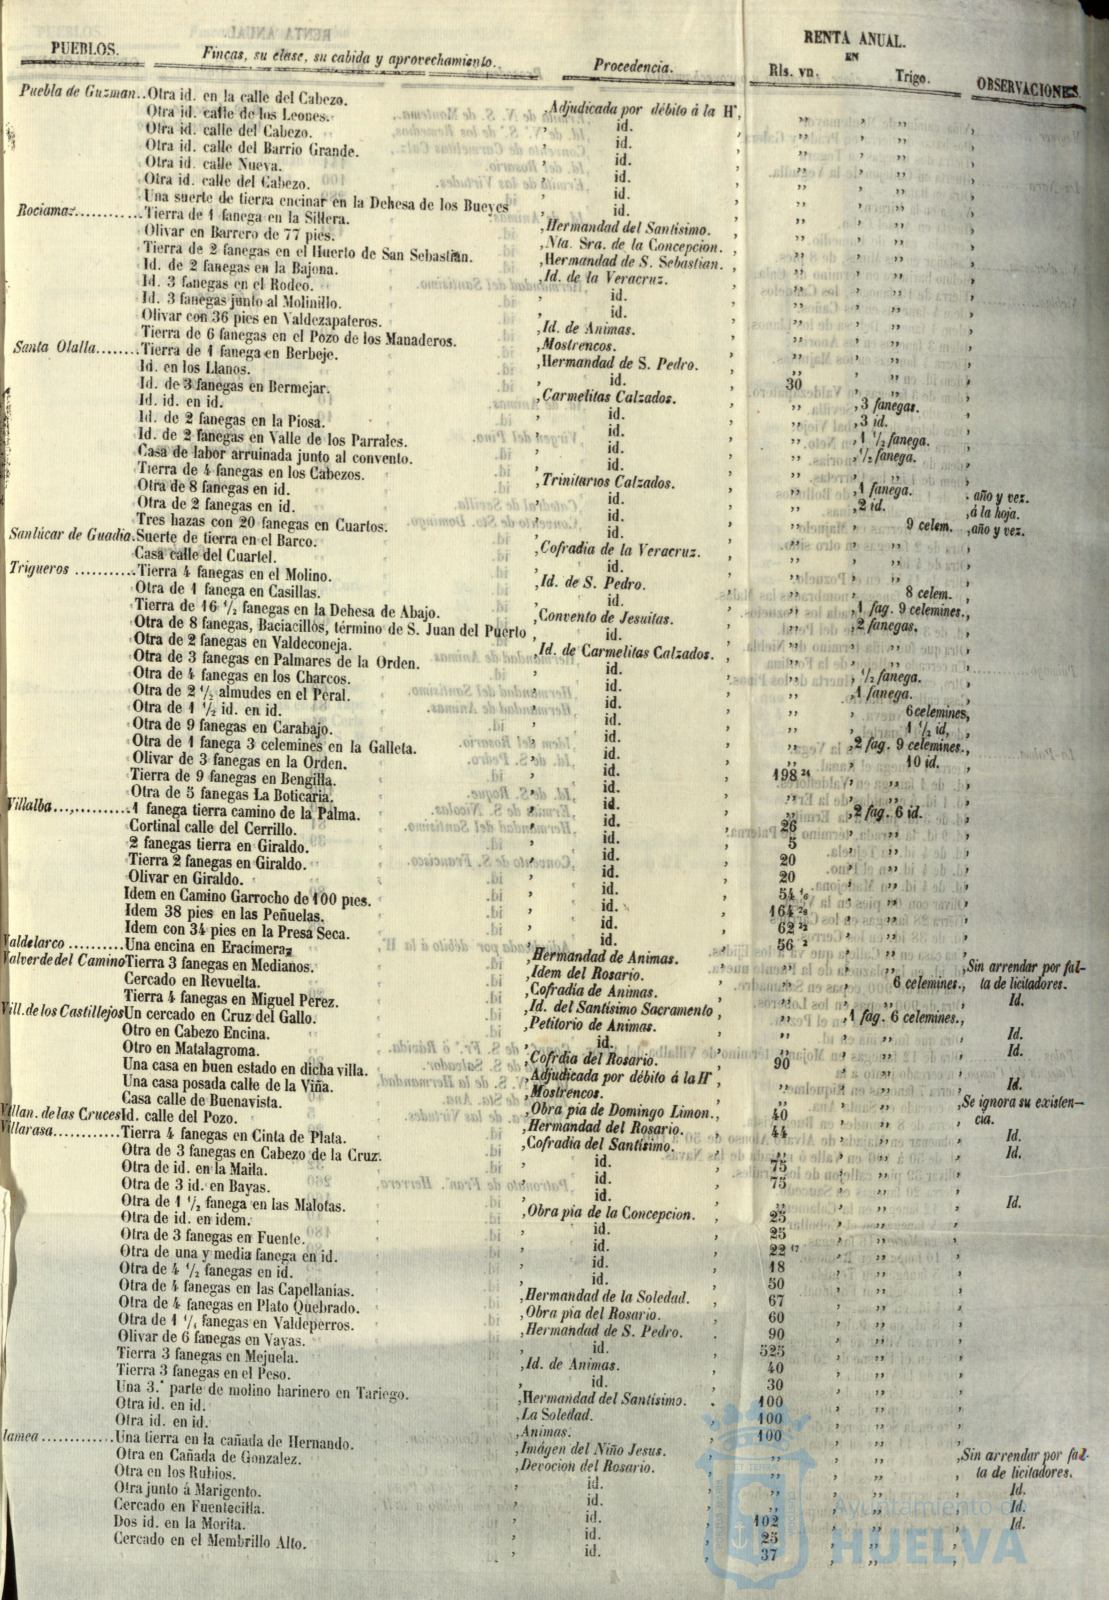 RENTA ANUAL.
PUEBLOS. Fincas, su clase, su cabida y aprovechamiento. Procedencia. EN Rls. vn. Trigo. OBSERVACIONES.
Puebla de Guzman..Otra id. en la calle del Cabezo. Adjudicada por débito á la Hª,
Otra id. calle de los Leones. id.
Otra id. calle del Cabezo. id.
Otra id. calle del Barrio Grande. id.
Otra id. calle Nueva. id.
Otra id. calle del Cabezo. id.
Una suerte de tierra encinar en la Dehesa de los Bueyes id.
Rociana...........Tierra de 1 fanega en la Sillera. Hermandad del Santísimo.
Olivar en Barrero de 77 pies. Nta. Sra. de la Concepcion.
Tierra de 2 fanegas en el Huerto de San Sebastian. Hermandad de S. Sebastian.
Id. de 2 fanegas en la Bajona. Id. de la Veracruz.
Id. 3 fanegas en el Rodeo. id.
Id. 3 fanegas junto al Molinillo. id.
Olivar con 36 pies en Valdezapateros. Id. de Animas.
Tierra de 6 fanegas en el Pozo de los Manaderos. Mostrencos.
Santa Olalla.......Tierra de 1 fanega en Berbeje. Hermandad de S. Pedro.
Id. en los Llanos. id. 30
Id. de 3 fanegas en Bermejar. Carmelitas Calzados. 3 fanegas.
Id. id. en id. id. 3 id.
Id. de 2 fanegas en la Piosa. id. 1 1/2 fanega.
Id. de 2 fanegas en Valle de los Parrales. id. 1/2 fanega.
Casa de labor arruinada junto al convento. id.
Tierra de 4 fanegas en los Cabezos. Trinitarios Calzados. 1 fanega. año y vez.
Otra de 8 fanegas en id. id. 2 id. á la hoja.
Otra de 2 fanegas en id. id. 9 celem. año y vez.
Tres hazas con 20 fanegas en Cuartos. id.
Sanlúcar de Guadia.Suerte de tierra en el Barco. Cofradia de la Veracruz.
Casa calle del Cuartel. id.
Trigueros ..........Tierra 4 fanegas en el Molino. Id. de S. Pedro. 8 celem.
Otra de 1 fanega en Casillas. id. 1 fag. 9 celemines.
Tierra de 16 1/2 fanegas en la Dehesa de Abajo. Convento de Jesuitas. 2 fanegas.
Otra de 8 fanegas, Baciacillos, término de S. Juan del Puerto id.
Otra de 2 fanegas en Valdeconeja. Id. de Carmelitas Calzados.
Otra de 3 fanegas en Palmares de la Orden. id. 1/2 fanega.
Otra de 4 fanegas en los Charcos. id. 1 fanega.
Otra de 2 1/2 almudes en el Peral. id. 6 celemines,
Otra de 1 1/2 id. en id. id. 1 1/2 id,
Otra de 9 fanegas en Carabajo. id. 2 fag. 9 celemines.
Otra de 1 fanega 3 celemines en la Galleta. id. 10 id.
Olivar de 3 fanegas en la Orden. id. 198 24
Tierra de 9 fanegas en Bengilla. id.
Otra de 5 fanegas La Boticaria. id. 2 fag. 6 id.
Villalba............1 fanega tierra camino de la Palma. id. 26
Cortinal calle del Cerrillo. id. 5
2 fanegas tierra en Giraldo. id. 20
Tierra 2 fanegas en Giraldo. id. 20
Olivar en Giraldo. id. 54
Idem en Camino Garrocho de 100 pies. id. 164
Idem 38 pies en las Peñuelas. id. 62
Idem con 34 pies en la Presa Seca. id. 56 2
Valdelarco ..........Una encina en Eracimera. Hermandad de Animas. Sin arrendar por falta de licitadores.
Valverde del Camino Tierra 3 fanegas en Medianos. Idem del Rosario. 6 celemines.
Cercado en Revuelta. Cofradia de Animas. Id.
Tierra 4 fanegas en Miguel Perez. Id. del Santísimo Sacramento 1 fag. 6 celemines.
Vill. de los Castillejos Un cercado en Cruz del Gallo. Petitorio de Animas. Id.
Otro en Cabezo Encina. id. Id.
Otro en Matalagroma. Cofrdia del Rosario. 90
Una casa en buen estado en dicha villa. Adjudicada por débito á la Hª Id.
Una casa posada calle de la Viña. Mostrencos. Se ignora su existencia.
Casa calle de Buenavista. Obra pia de Domingo Limon. 40
Villan. de las Cruces Id. calle del Pozo. Hermandad del Rosario. 44 Id.
Villarasa............Tierra 4 fanegas en Cinta de Plata. Cofradia del Santísimo. Id.
Otra de 3 fanegas en Cabezo de la Cruz. id. 75
Otra de id. en la Maila. id. 75
Otra de 3 id. en Bayas. id. Id.
Otra de 1 1/2 fanega en las Malotas. Obra pia de la Concepcion. 25
Otra de id. en idem. id. 25
Otra de 3 fanegas en Fuente. id. 22 17
Otra de una y media fanega en id. id. 18
Otra de 4 1/2 fanegas en id. id. 50
Otra de 4 fanegas en las Capellanías. Hermandad de la Soledad. 67
Otra de 4 fanegas en Plato Quebrado. Obra pia del Rosario. 60
Otra de 1 1/4 fanegas en Valdeperros. Hermandad de S. Pedro. 90
Olivar de 6 fanegas en Vayas. id. 525
Tierra 3 fanegas en Mejuela. Id. de Animas. 40
Tierra 3 fanegas en el Peso. id. 30
Una 3.ª parte de molino harinero en Tariego. Hermandad del Santísimo. 100
Otra id. en id. La Soledad. 100
Otra id. en id. Animas. 100
lamea ............Una tierra en la cañada de Hernando. Imágen del Niño Jesus. Sin arrendar por falta de licitadores.
Otra en Cañada de Gonzalez. Devocion del Rosario. Id.
Otra en los Rubios. id. Id.
Otra junto á Marigento. id. Id.
Cercado en Fuentecilla. id. 102
Dos id. en la Morita. id. 25
Cercado en el Membrillo Alto. id. 37
Ayuntamiento de
HUELVA